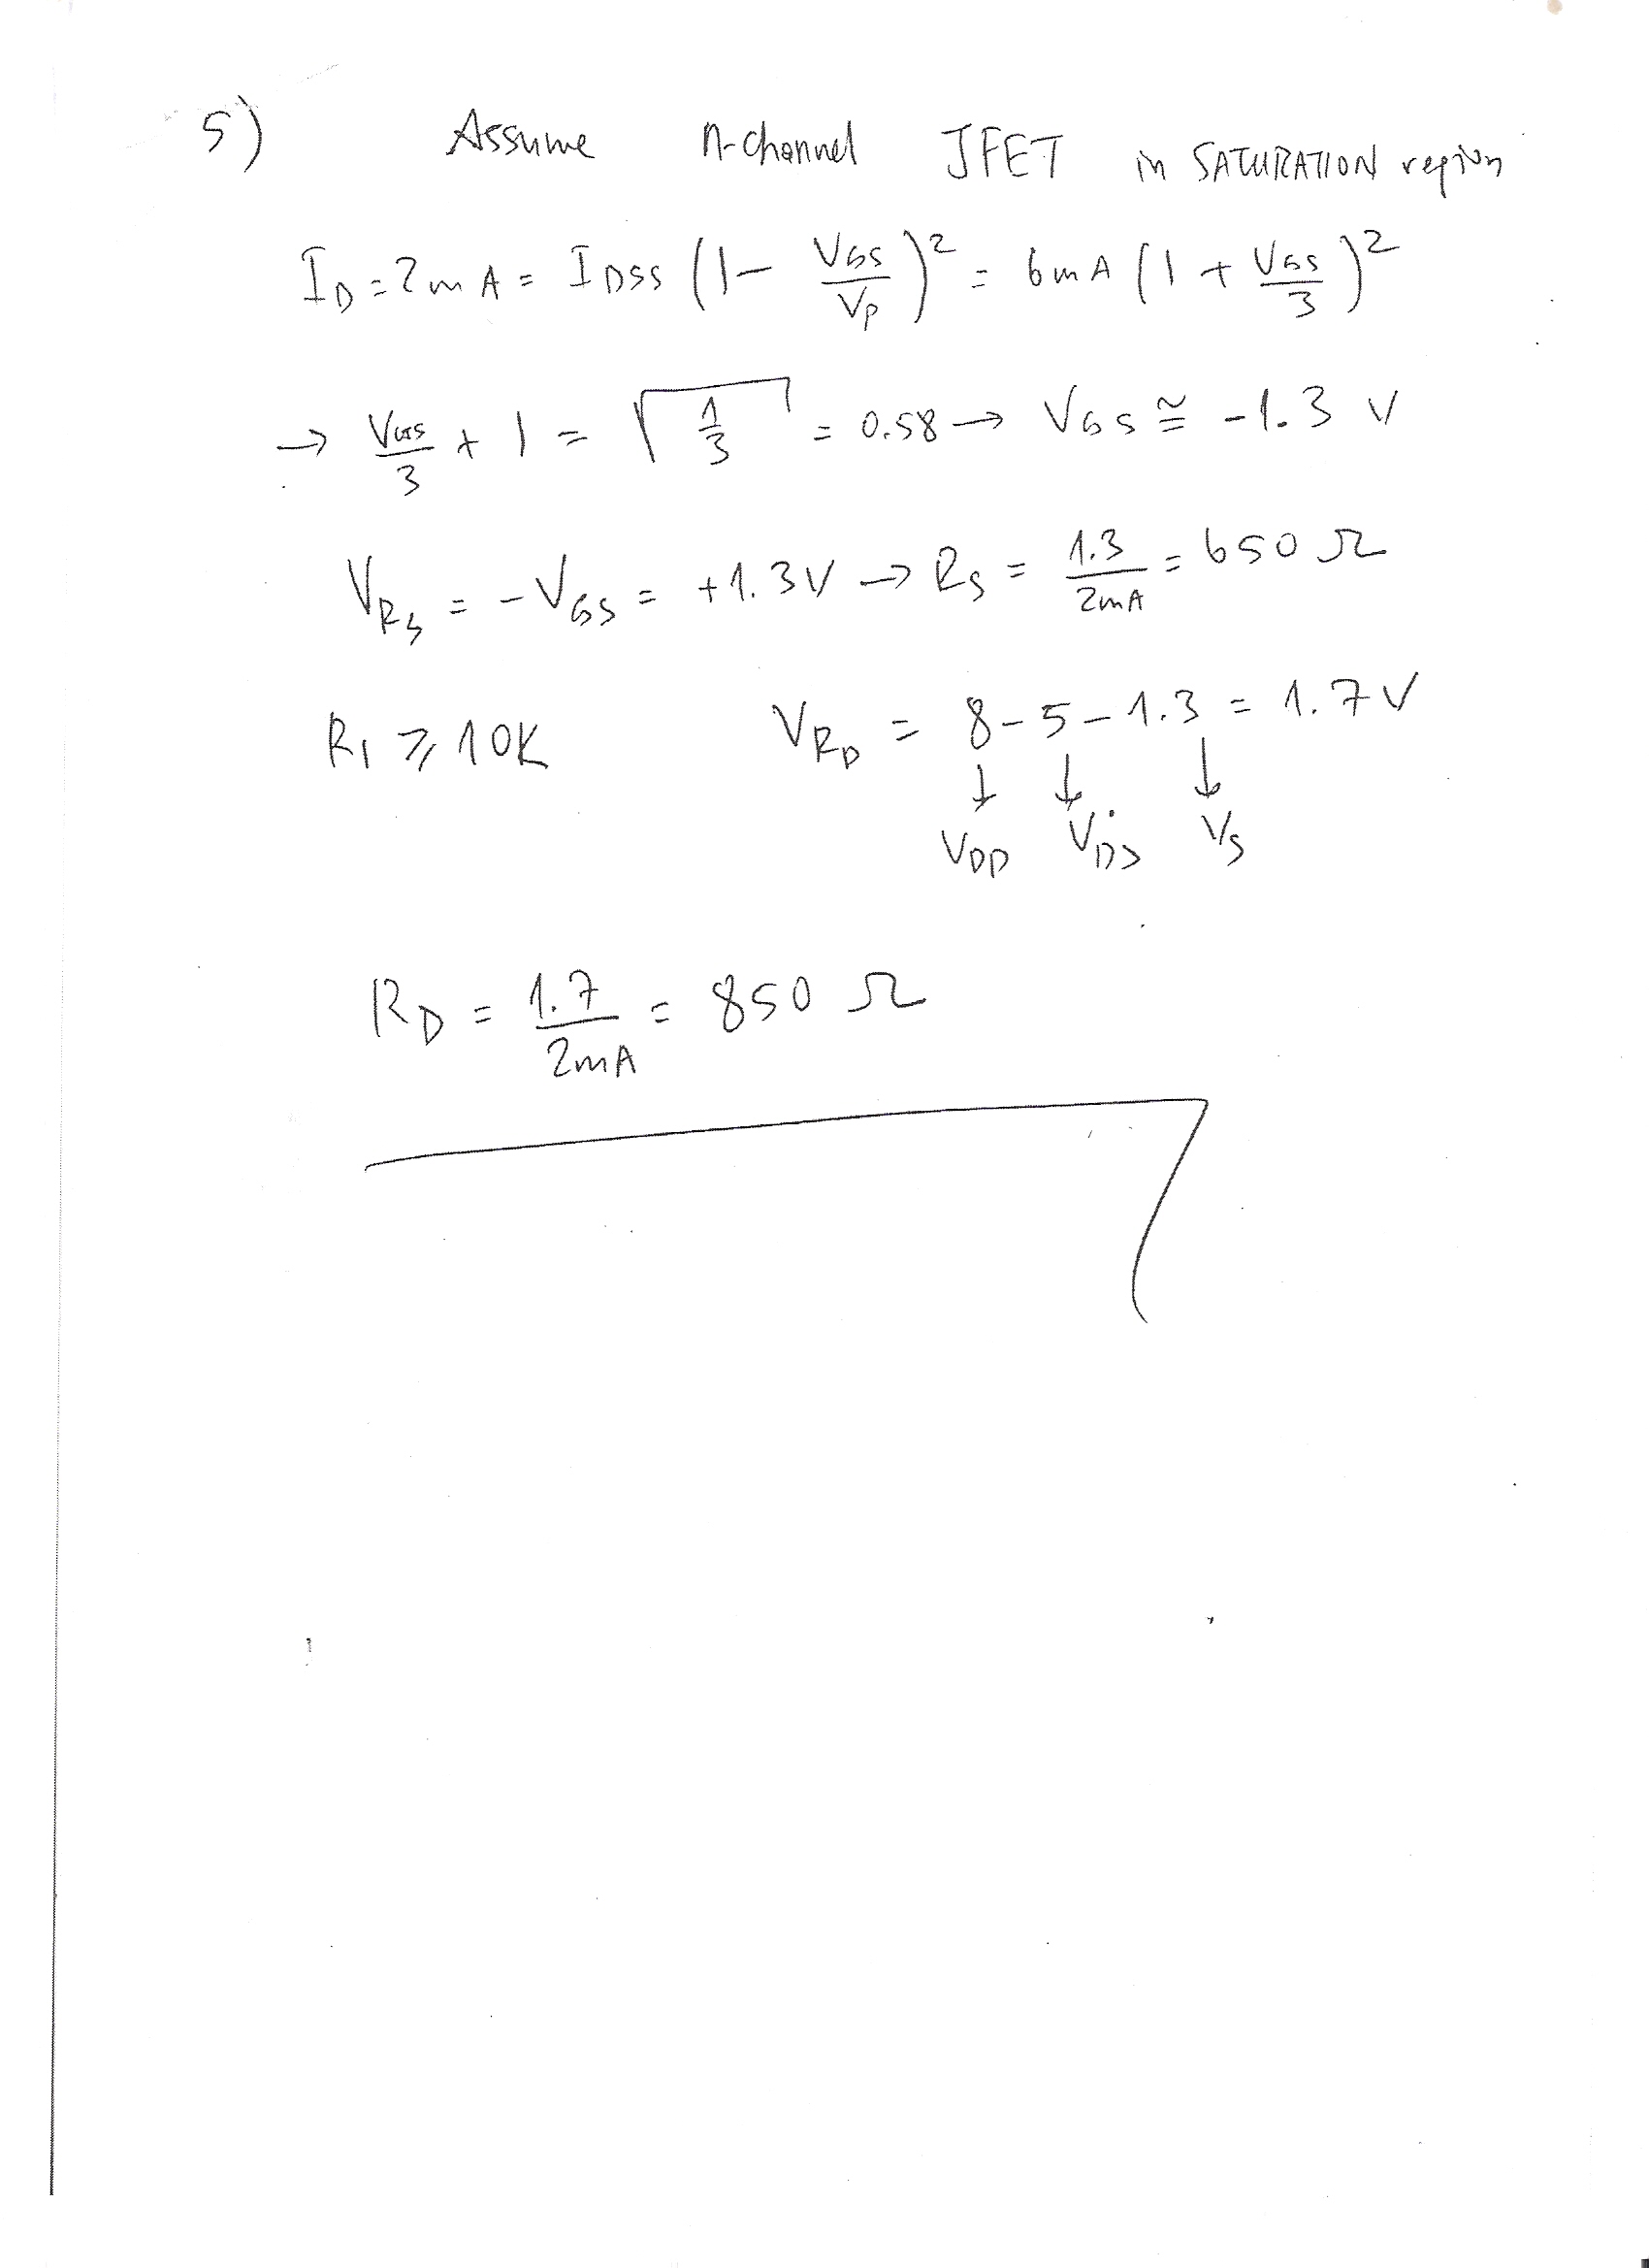 5) Assume n-channel JFET in SATURATION region
I_D = 2mA = I_DSS (1 - V_GS/V_P)^2 = 6mA (1 + V_GS/3)^2
→ V_GS/3 + 1 = √(1/3) = 0.58 → V_GS ≅ -1.3 V
V_RS = -V_GS = +1.3V → R_S = 1.3/2mA = 650 Ω
R_1 ≥ 10K V_RD = 8 - 5 - 1.3 = 1.7 V
↓ ↓ ↓
V_DD V_DS V_S
R_D = 1.7/2mA = 850 Ω